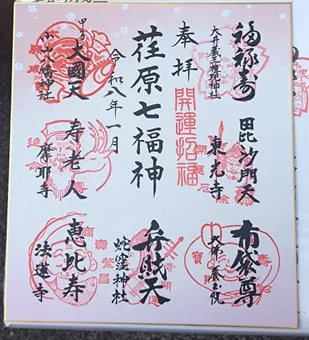 福禄寿
大井蔵王権現神社
毘沙門天
東光寺
布袋尊
養玉院
奉拝
開運招福
荏原七福神
令和八年一月
弁財天
蛇窪神社
大國天
小山八幡神社
寿老人
摩耶寺
恵比寿
法蓮寺